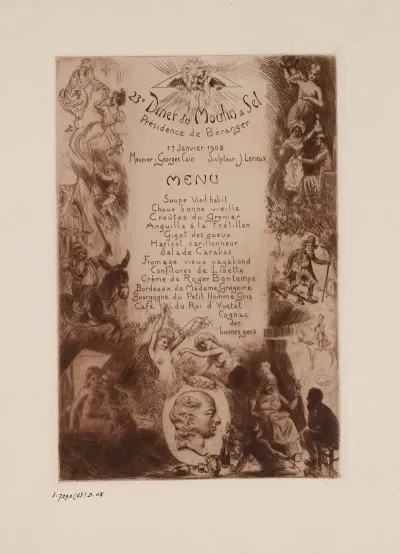 23e Diner du Moulin à Sel
Présidence de Béranger
17 Janvier 1908
Meunier: Georges Cain Sculpteur J Lorieux
MENU
Soupe Vieil habit
Choux bonne vieille
Croûtes du Grenier
Anguille à la Frétillon
Gigot des gueux
Haricot carillonneur
Salade Carabas
Fromage vieux vagabond
Confitures de Lisette
Crème de Roger Bontemps
Bordeaux de Madame Grégoire
Bourgogne du Petit Homme Gris
Café du Roi d'Yvetot
Cognac
des
bonnes gens